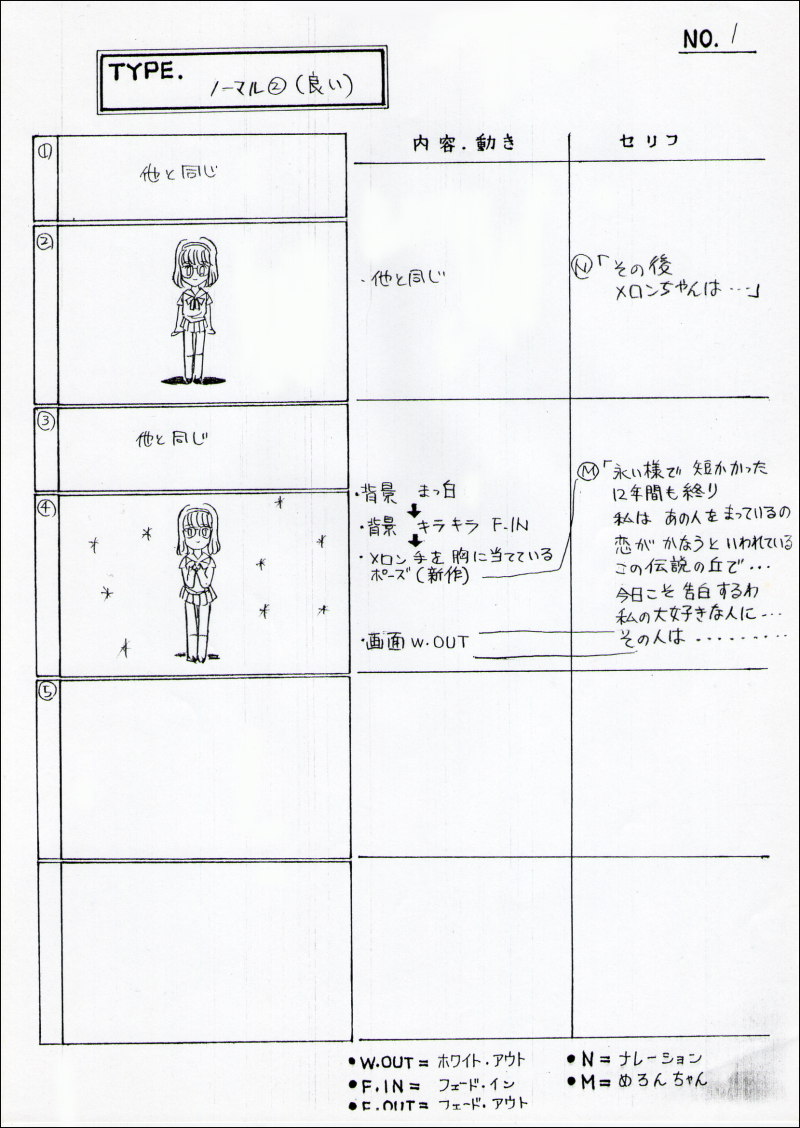 NO. 1
TYPE.
ノーマル②(良い)
内容.動き
セリフ
①
他と同じ
②
・他と同じ
Ⓝ「その後
メロンちゃんは・・・」
③
他と同じ
④
・背景 まっ白
・背景 キラキラ F.IN
・メロン手を胸に当てている
ポーズ(新作)
・画面 W.OUT
Ⓜ「永い様で 短かかった
12年間も終り
私は あの人をまっているの
恋が かなうと いわれている
この伝説の丘で・・・
今日こそ 告白するわ
私の大好きな人に・・・
その人は ・・・・・・・・・
⑤
●W.OUT= ホワイト.アウト
●F.IN= フェード.イン
●F.OUT= フェード.アウト
●N= ナレーション
●M= めろんちゃん